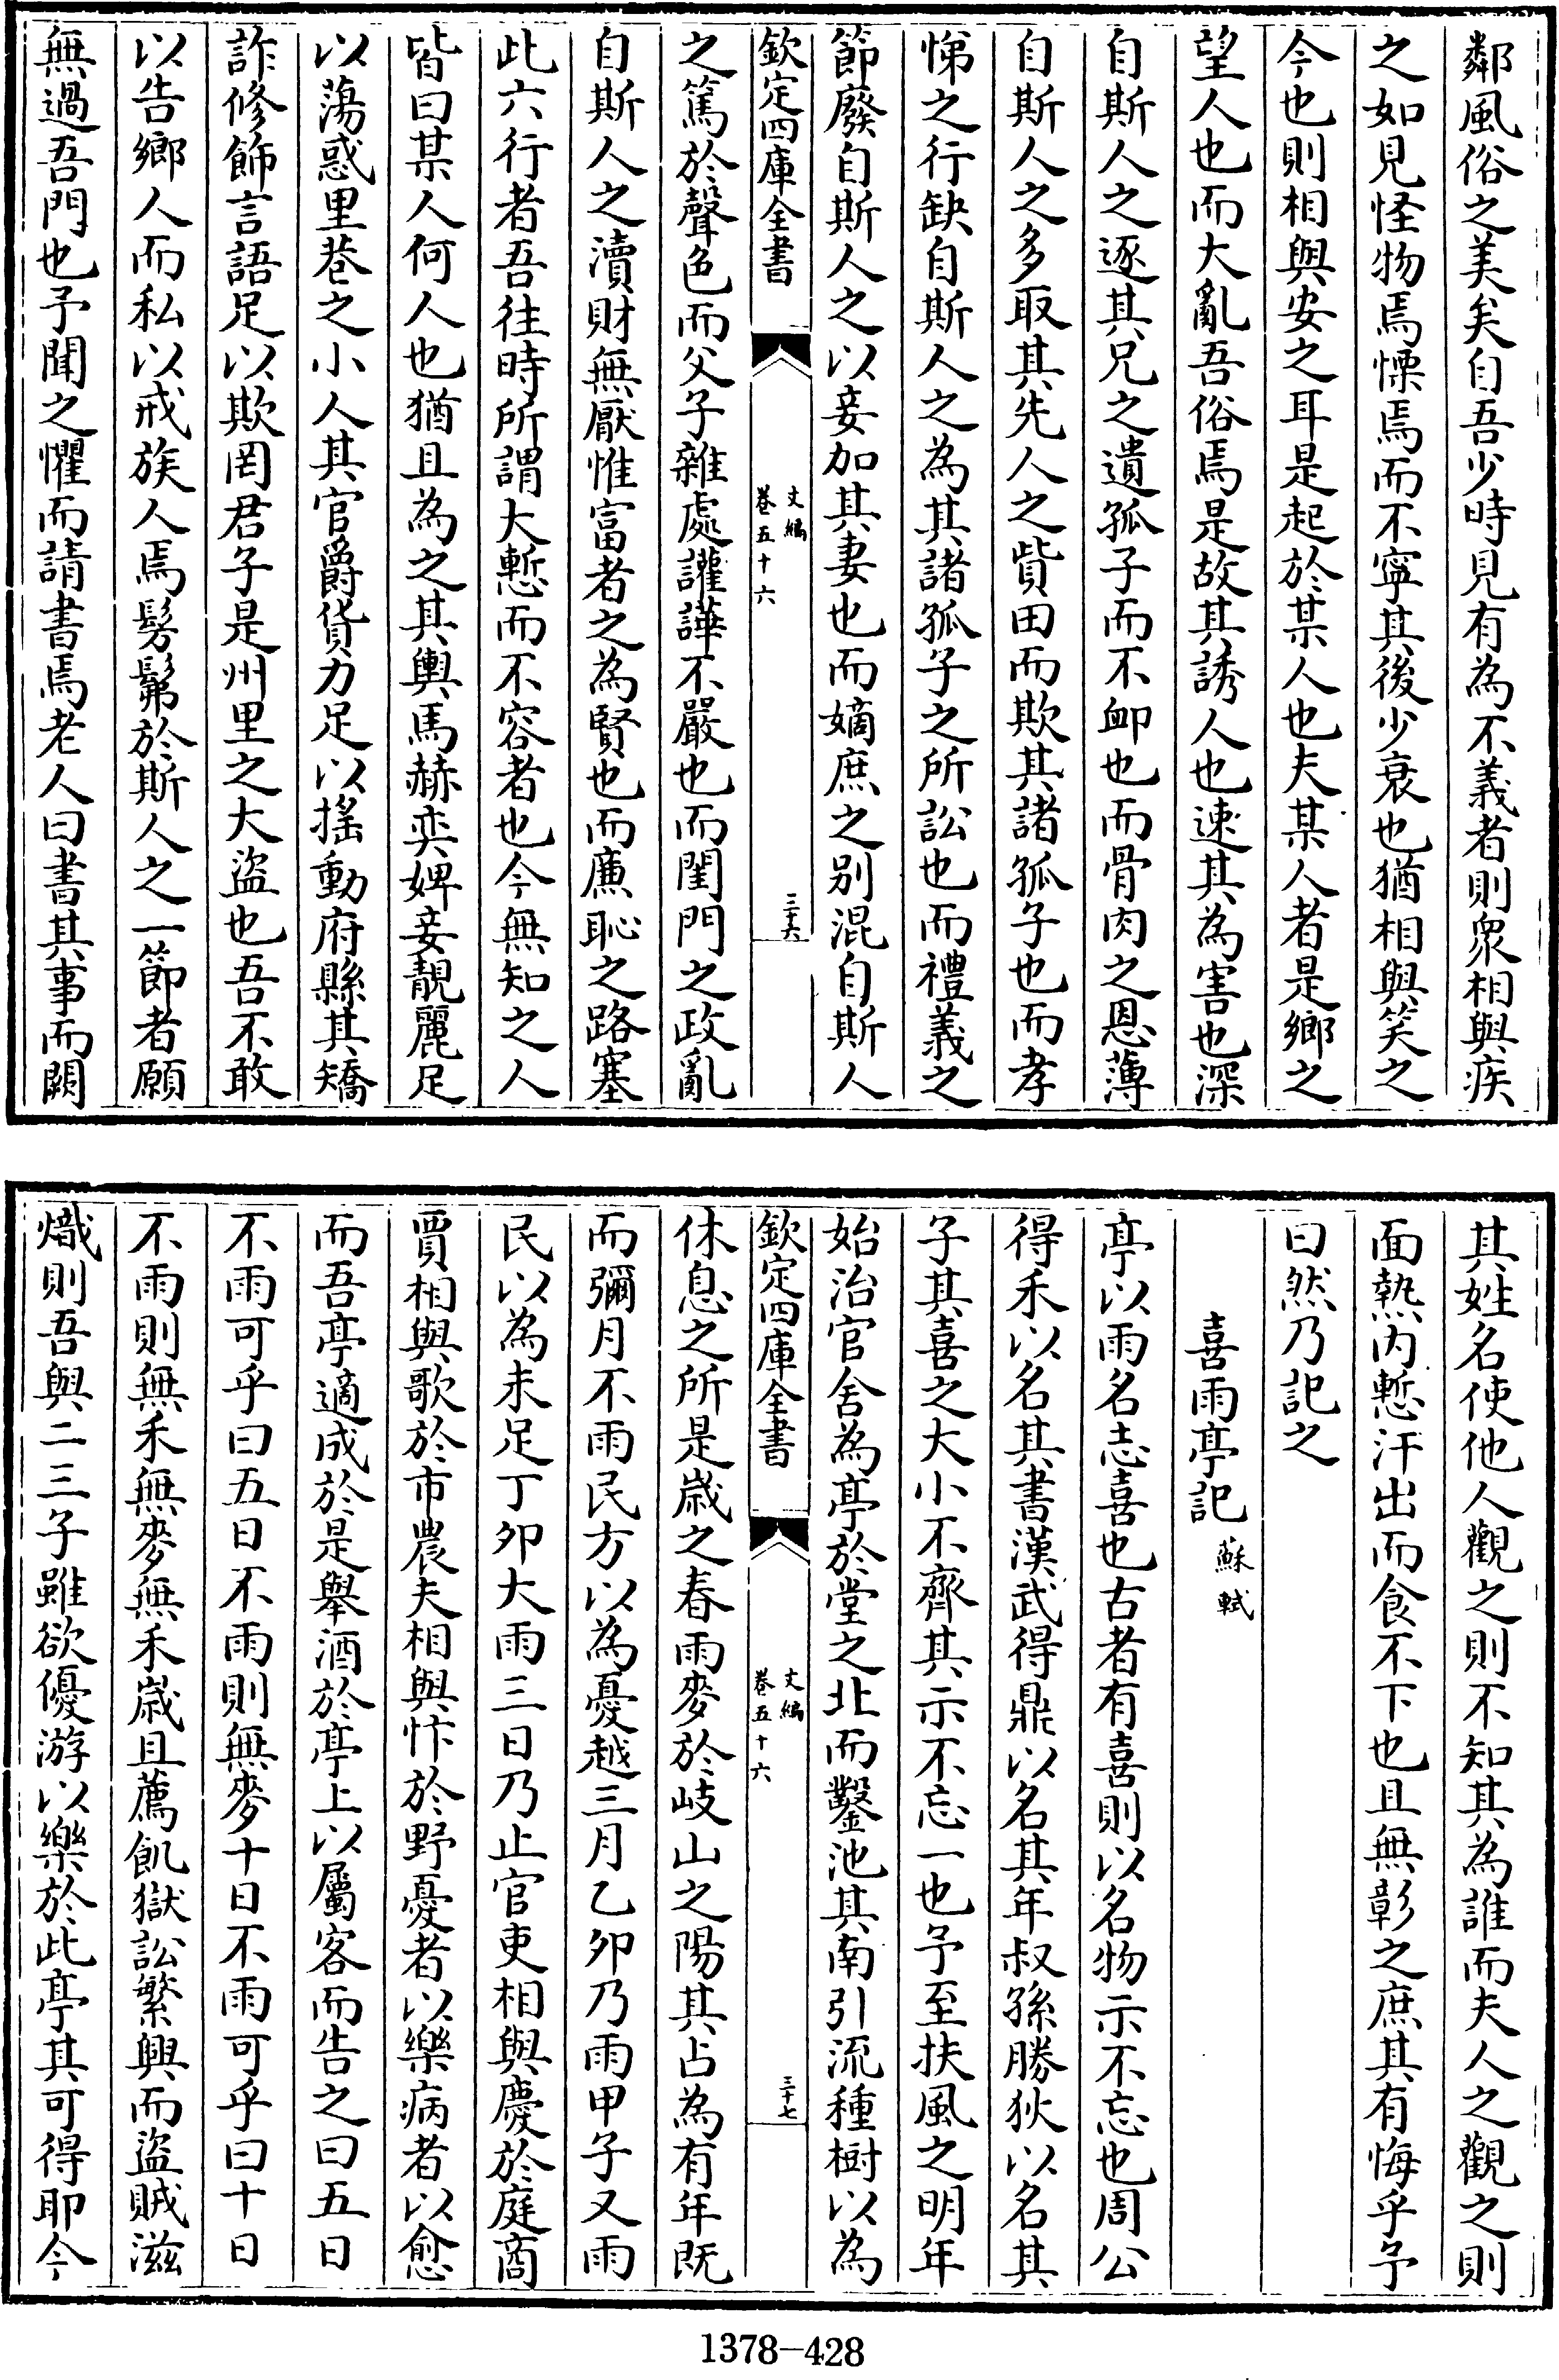 鄰風俗之美矣自吾少時見有為不義者則衆相與疾
之如見怪物焉慄焉而不寧其後少衰也猶相與笑之
今也則相與安之耳是起於某人也夫某人者是鄉之
望人也而大亂吾俗焉是故其誘人也速其為害也深
自斯人之逐其兄之遺孤子而不卹也而骨肉之恩薄
自斯人之多取其先人之貲田而欺其諸孤子也而孝
悌之行缺自斯人之為其諸孤子之所訟也而禮義之
節廢自斯人之以妾加其妻也而嫡庶之别混自斯人
欽定四庫全書
文編
卷五十六
三十六
之篤於聲色而父子雜處讙譁不嚴也而閨門之政亂
自斯人之瀆財無厭惟富者之為賢也而廉恥之路塞
此六行者吾往時所謂大慙而不容者也今無知之人
皆曰某人何人也猶且為之其輿馬赫奕婢妾靚麗足
以蕩惑里巷之小人其官爵貨力足以搖動府縣其矯
詐修飾言語足以欺罔君子是州里之大盜也吾不敢
以告鄉人而私以戒族人焉髣髴於斯人之一節者願
無過吾門也予聞之懼而請書焉老人曰書其事而闕
其姓名使他人觀之則不知其為誰而夫人之觀之則
面熱内慙汗出而食不下也且無彰之庶其有悔乎予
曰然乃記之
喜雨亭記 蘇軾
亭以雨名志喜也古者有喜則以名物示不忘也周公
得禾以名其書漢武得鼎以名其年叔孫勝狄以名其
子其喜之大小不齊其示不忘一也予至扶風之明年
始治官舍為亭於堂之北而鑿池其南引流種樹以為
欽定四庫全書
文編
卷五十六
三十七
休息之所是歲之春雨麥於岐山之陽其占為有年既
而彌月不雨民方以為憂越三月乙夘乃雨甲子又雨
民以為未足丁夘大雨三日乃止官吏相與慶於庭商
賈相與歌於市農夫相與忭於野憂者以樂病者以愈
而吾亭適成於是舉酒於亭上以屬客而告之曰五日
不雨可乎曰五日不雨則無麥十日不雨可乎曰十日
不雨則無禾無麥無禾歲且薦飢獄訟繁興而盜賊滋
熾則吾與二三子雖欲優游以樂於此亭其可得耶今
1378-428